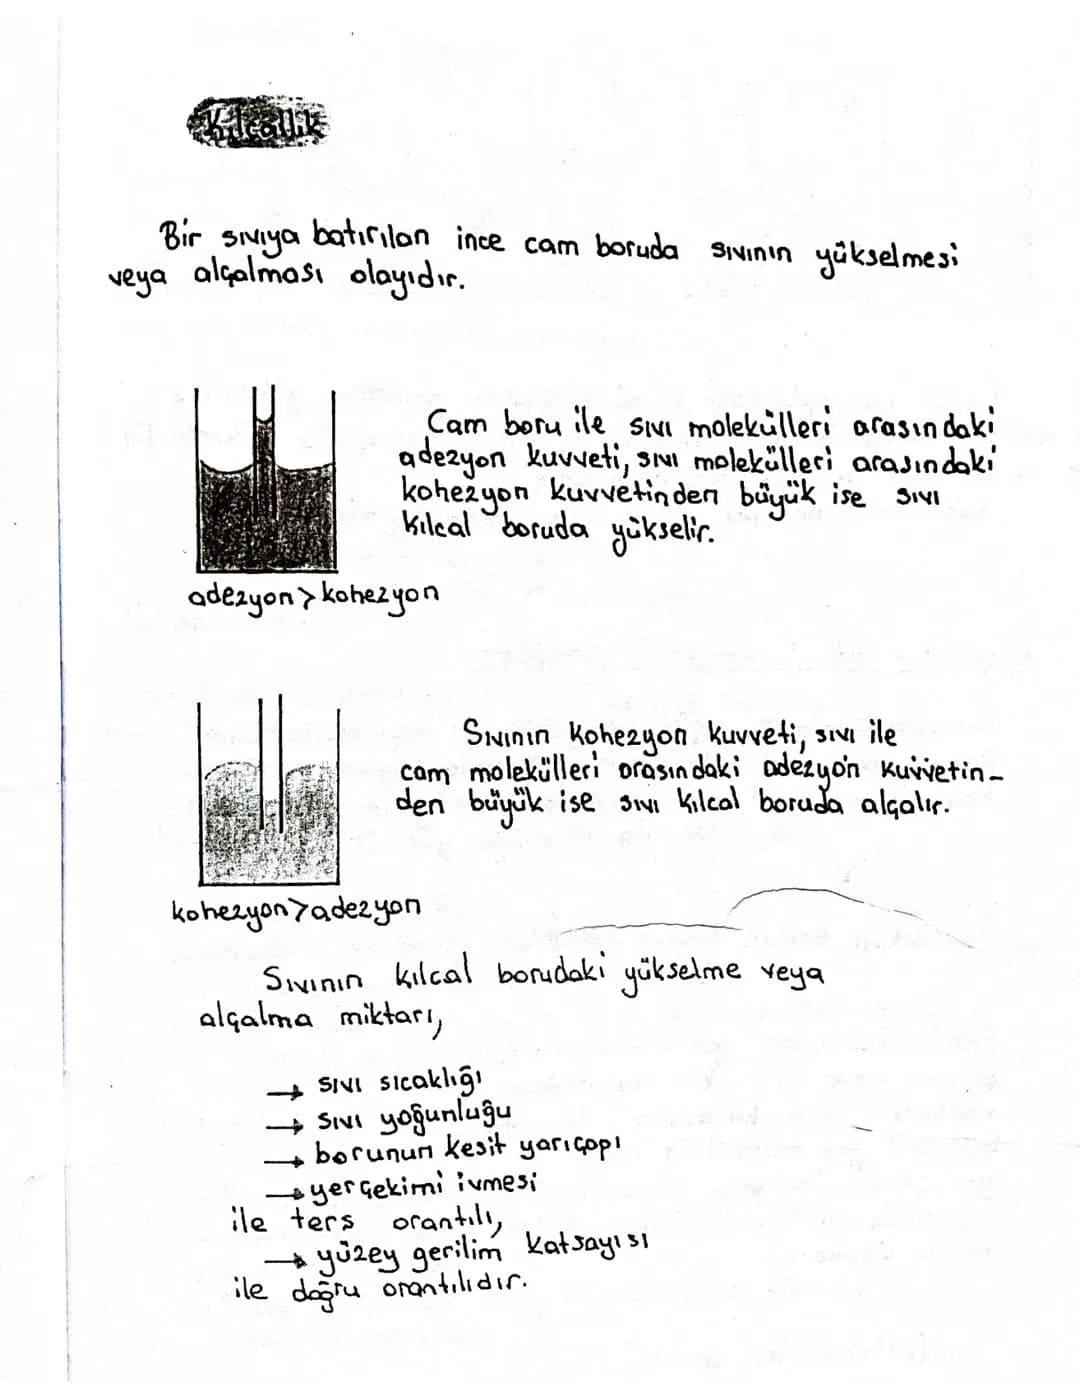 Kılcallık
Bir sıvıya batırılan ince cam boruda sıvının yükselmesi
veya alçalması olayıdır.
Cam boru ile sıvı molekülleri arasındaki
adezyon kuvveti, sıvı molekülleri arasındaki
kohezyon kuvvetinden büyük ise sıvı
kılcal boruda yükselir.
adezyon > kohezyon
Sıvının kohezyon kuvveti, sıvı ile
cam molekülleri arasındaki adezyon kuvvetin-
den büyük ise sıvı kılcal boruda alçalır.
kohezyon > adezyon
Sıvının kılcal borudaki yükselme veya
alçalma miktarı,
→ sıvı sıcaklığı
→ sıvı yoğunluğu
→ borunun kesit yarıçapı
→ yer çekimi ivmesi
ile ters orantılı,
→ yüzey gerilim katsayısı
ile doğru orantılıdır.